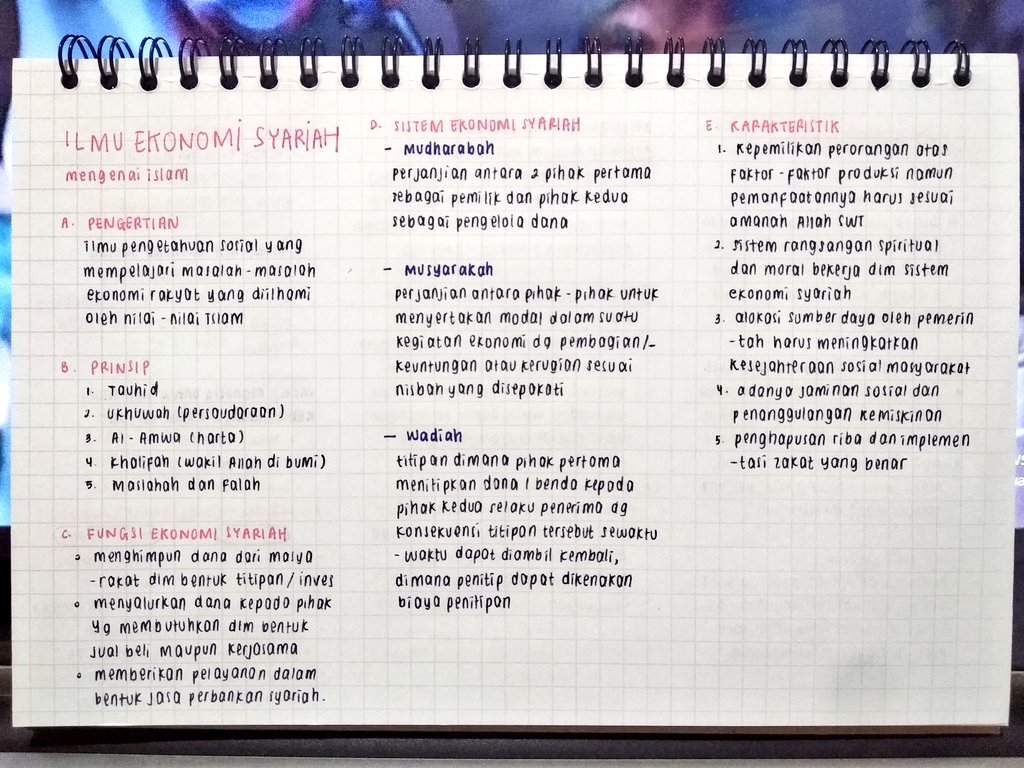 ILMU EKONOMI SYARIAH
mengenai islam
A. PENGERTIAN
ilmu pengetahuan sosial yang
mempelajari masalah-masalah
ekonomi rakyat yang diilhami
oleh nilai-nilai Islam
B. PRINSIP
1. Tauhid
2. ukhuwah (persaudaraan)
3. Al-Amwa (harta)
4. khalifah (wakil Allah di bumi)
5. Maslahah dan Falah
C. FUNGSI EKONOMI SYARIAH
• menghimpun dana dari masya
-rakat dlm bentuk titipan/inves
• menyalurkan dana kepada pihak
yg membutuhkan dlm bentuk
jual beli maupun kerjasama
• memberikan pelayanan dalam
bentuk jasa perbankan syariah.
D. SISTEM EKONOMI SYARIAH
- Mudharabah
perjanjian antara 2 pihak pertama
sebagai pemilik dan pihak kedua
sebagai pengelola dana
- Musyarakah
perjanjian antara pihak-pihak untuk
menyertakan modal dalam suatu
kegiatan ekonomi dg pembagian/-
keuntungan atau kerugian sesuai
nisbah yang disepakati
- Wadiah
titipan dimana pihak pertama
menitipkan dana / benda kepada
pihak kedua relaku penerima dg
konsekuensi titipan tersebut sewaktu
-waktu dapat diambil kembali,
dimana penitip dapat dikenakan
biaya penitipan
E. KARAKTERISTIK
1. kepemilikan perorangan atas
faktor-faktor produksi namun
pemanfaatannya harus sesuai
amanah Allah SWT
2. sistem rangsangan spiritual
dan moral bekerja dlm sistem
ekonomi syariah
3. alokasi sumber daya oleh pemerin
-tah harus meningkatkan
kesejahteraan sosial masyarakat
4. adanya jaminan sosial dan
penanggulangan kemiskinan
5. penghapusan riba dan implemen
-tasi zakat yang benar